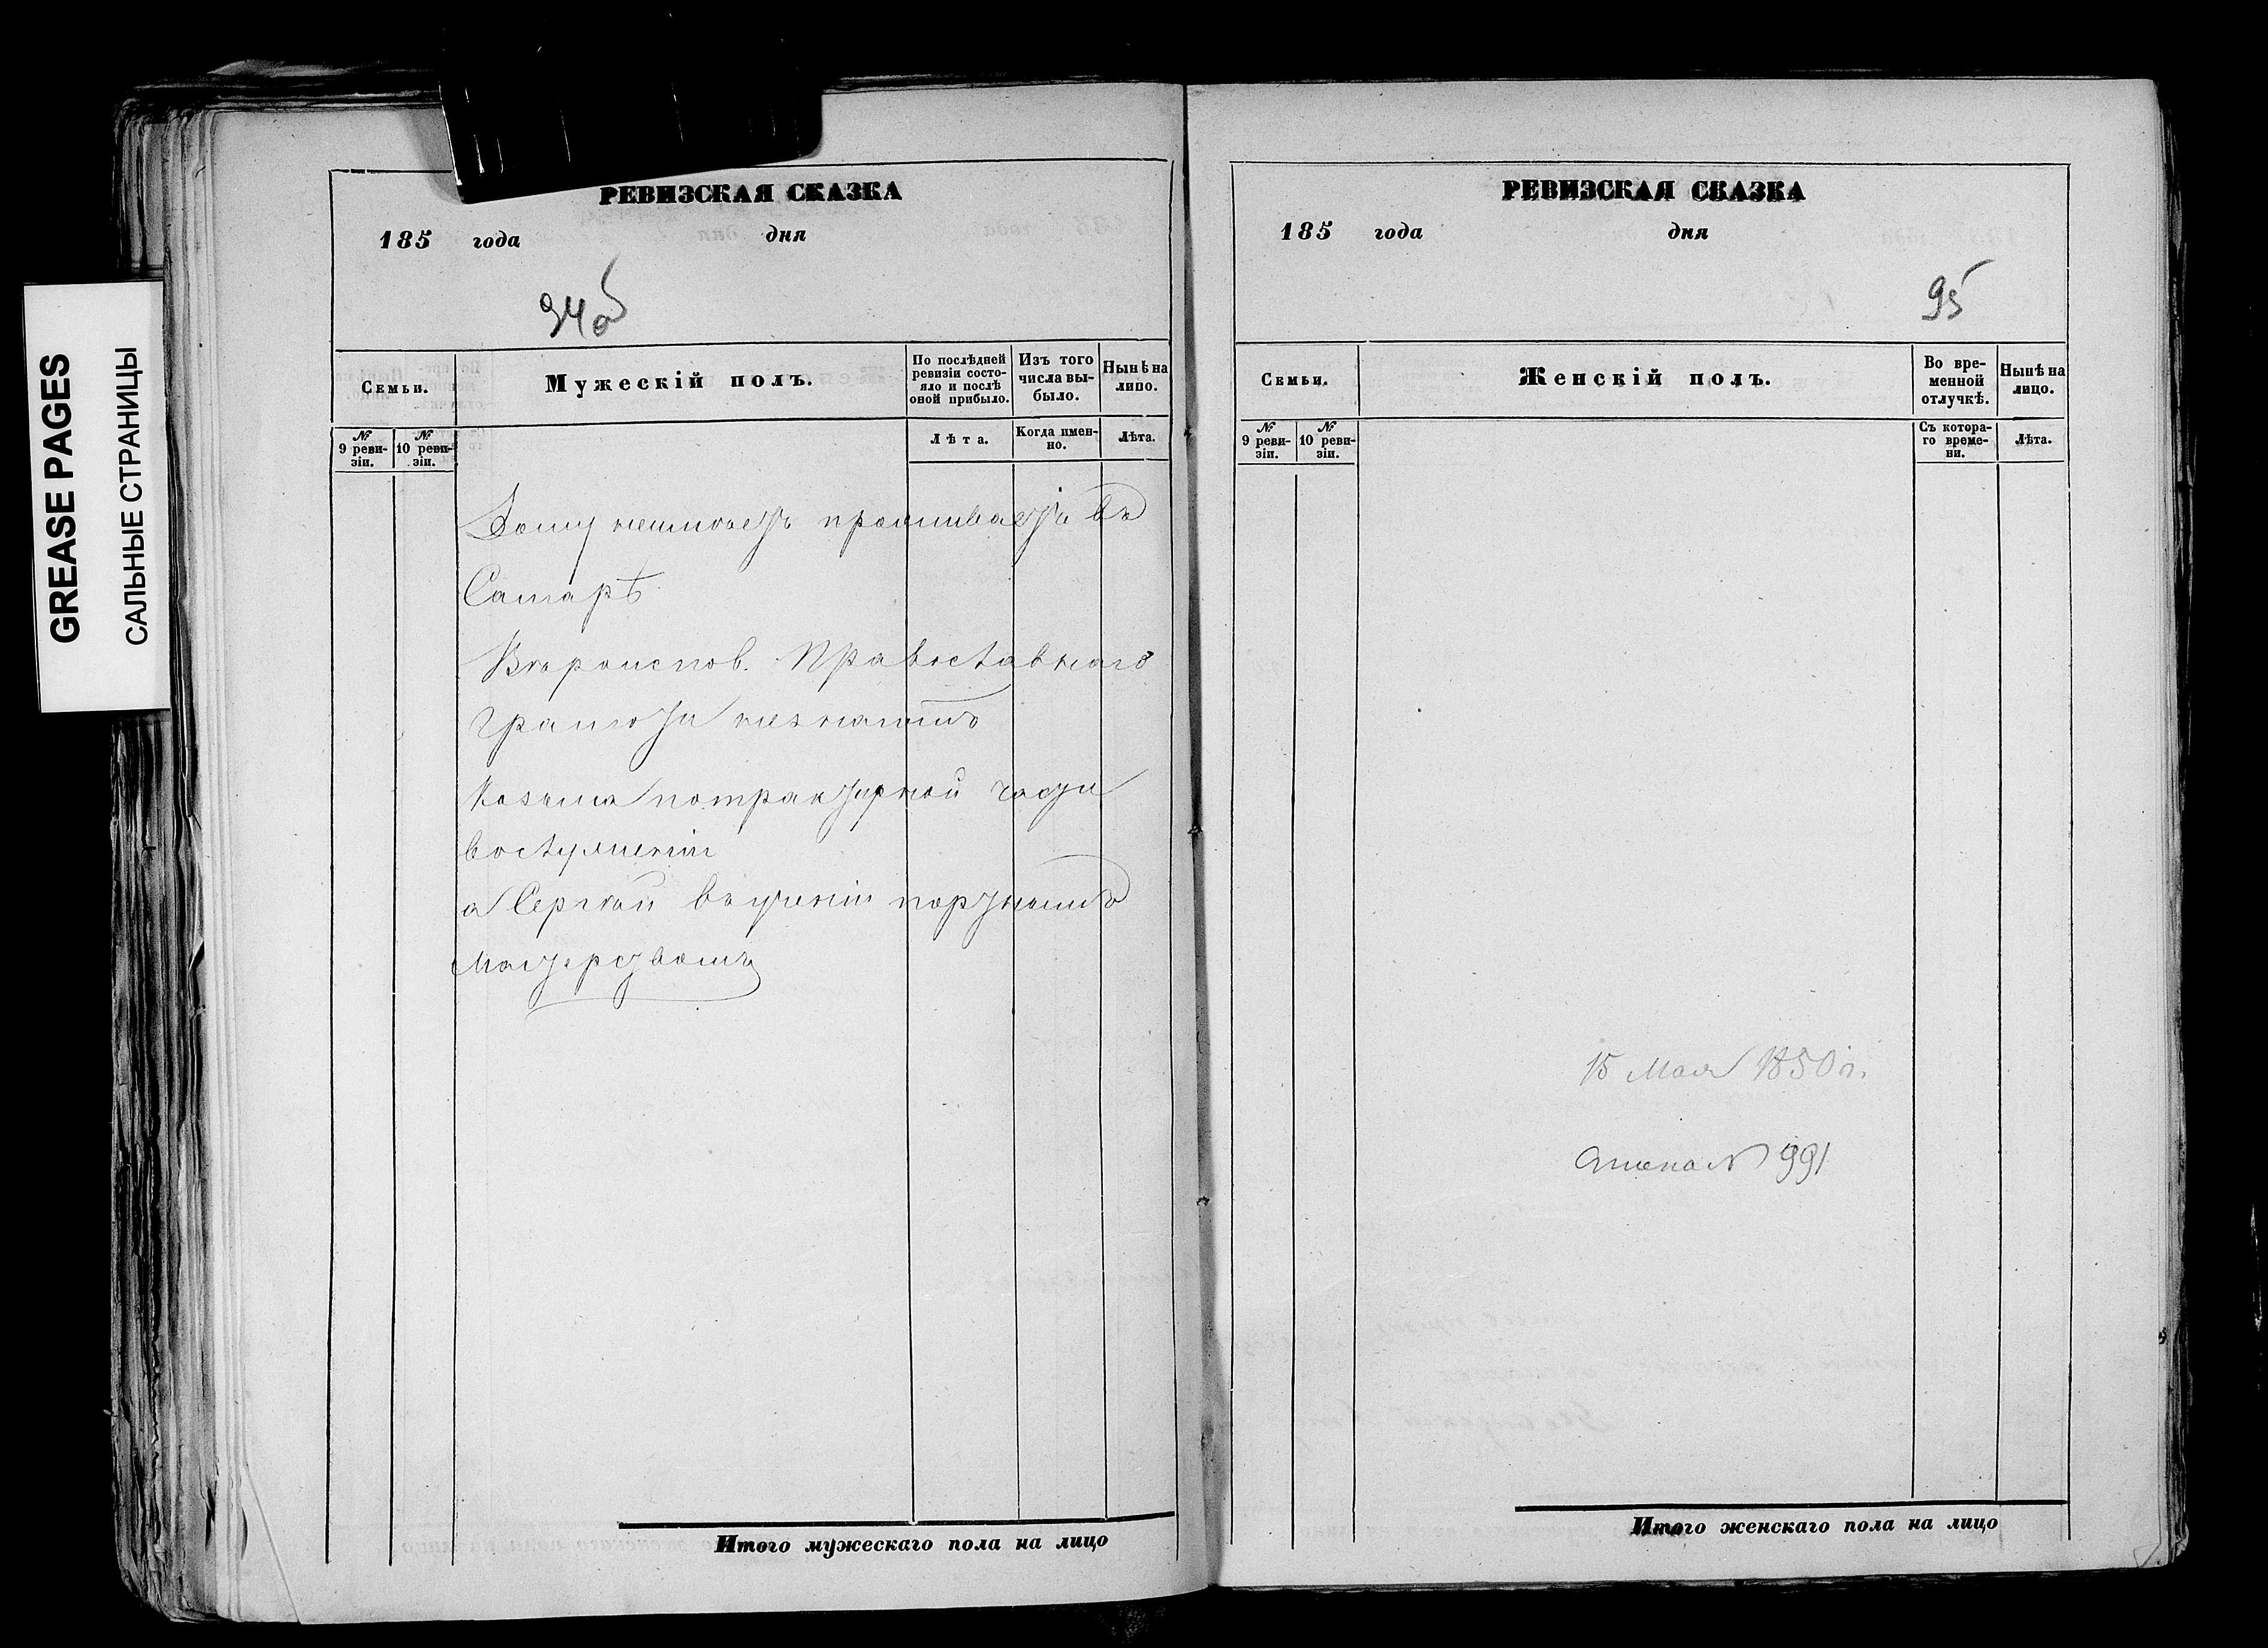 GREASE PAGES
САЛЬНЫЕ СТРАНИЦЫ
РЕВИЗСКАЯ СКАЗКА
185 года дня
94об
Семьи.
Мужескій полъ.
По послѣдней ревизіи состояло и послѣ оной прибыло.
Изъ того числа выбыло.
Нынѣ на лицо.
№ 9 ревизіи.
№ 10 ревизіи.
Лѣта.
Когда именно.
Лѣта.
Дому неимѣетъ проживаетъ въ
Самарѣ
Вѣроиспов. Православнаго
Грамоти незнаютъ
Козьма потрактирной части
вослуженіи
а Сергѣй въученіи портномъ
Мастерствомъ
Итого мужескаго пола на лицо
РЕВИЗСКАЯ СКАЗКА
185 года дня
95
Семьи.
Женскій полъ.
Во временной отлучкѣ.
Нынѣ на лицо.
№ 9 ревизіи.
№ 10 ревизіи.
Съ котораго времени.
Лѣта.
15 Мая 1850 г.
№ 991
Итого женскаго пола на лицо